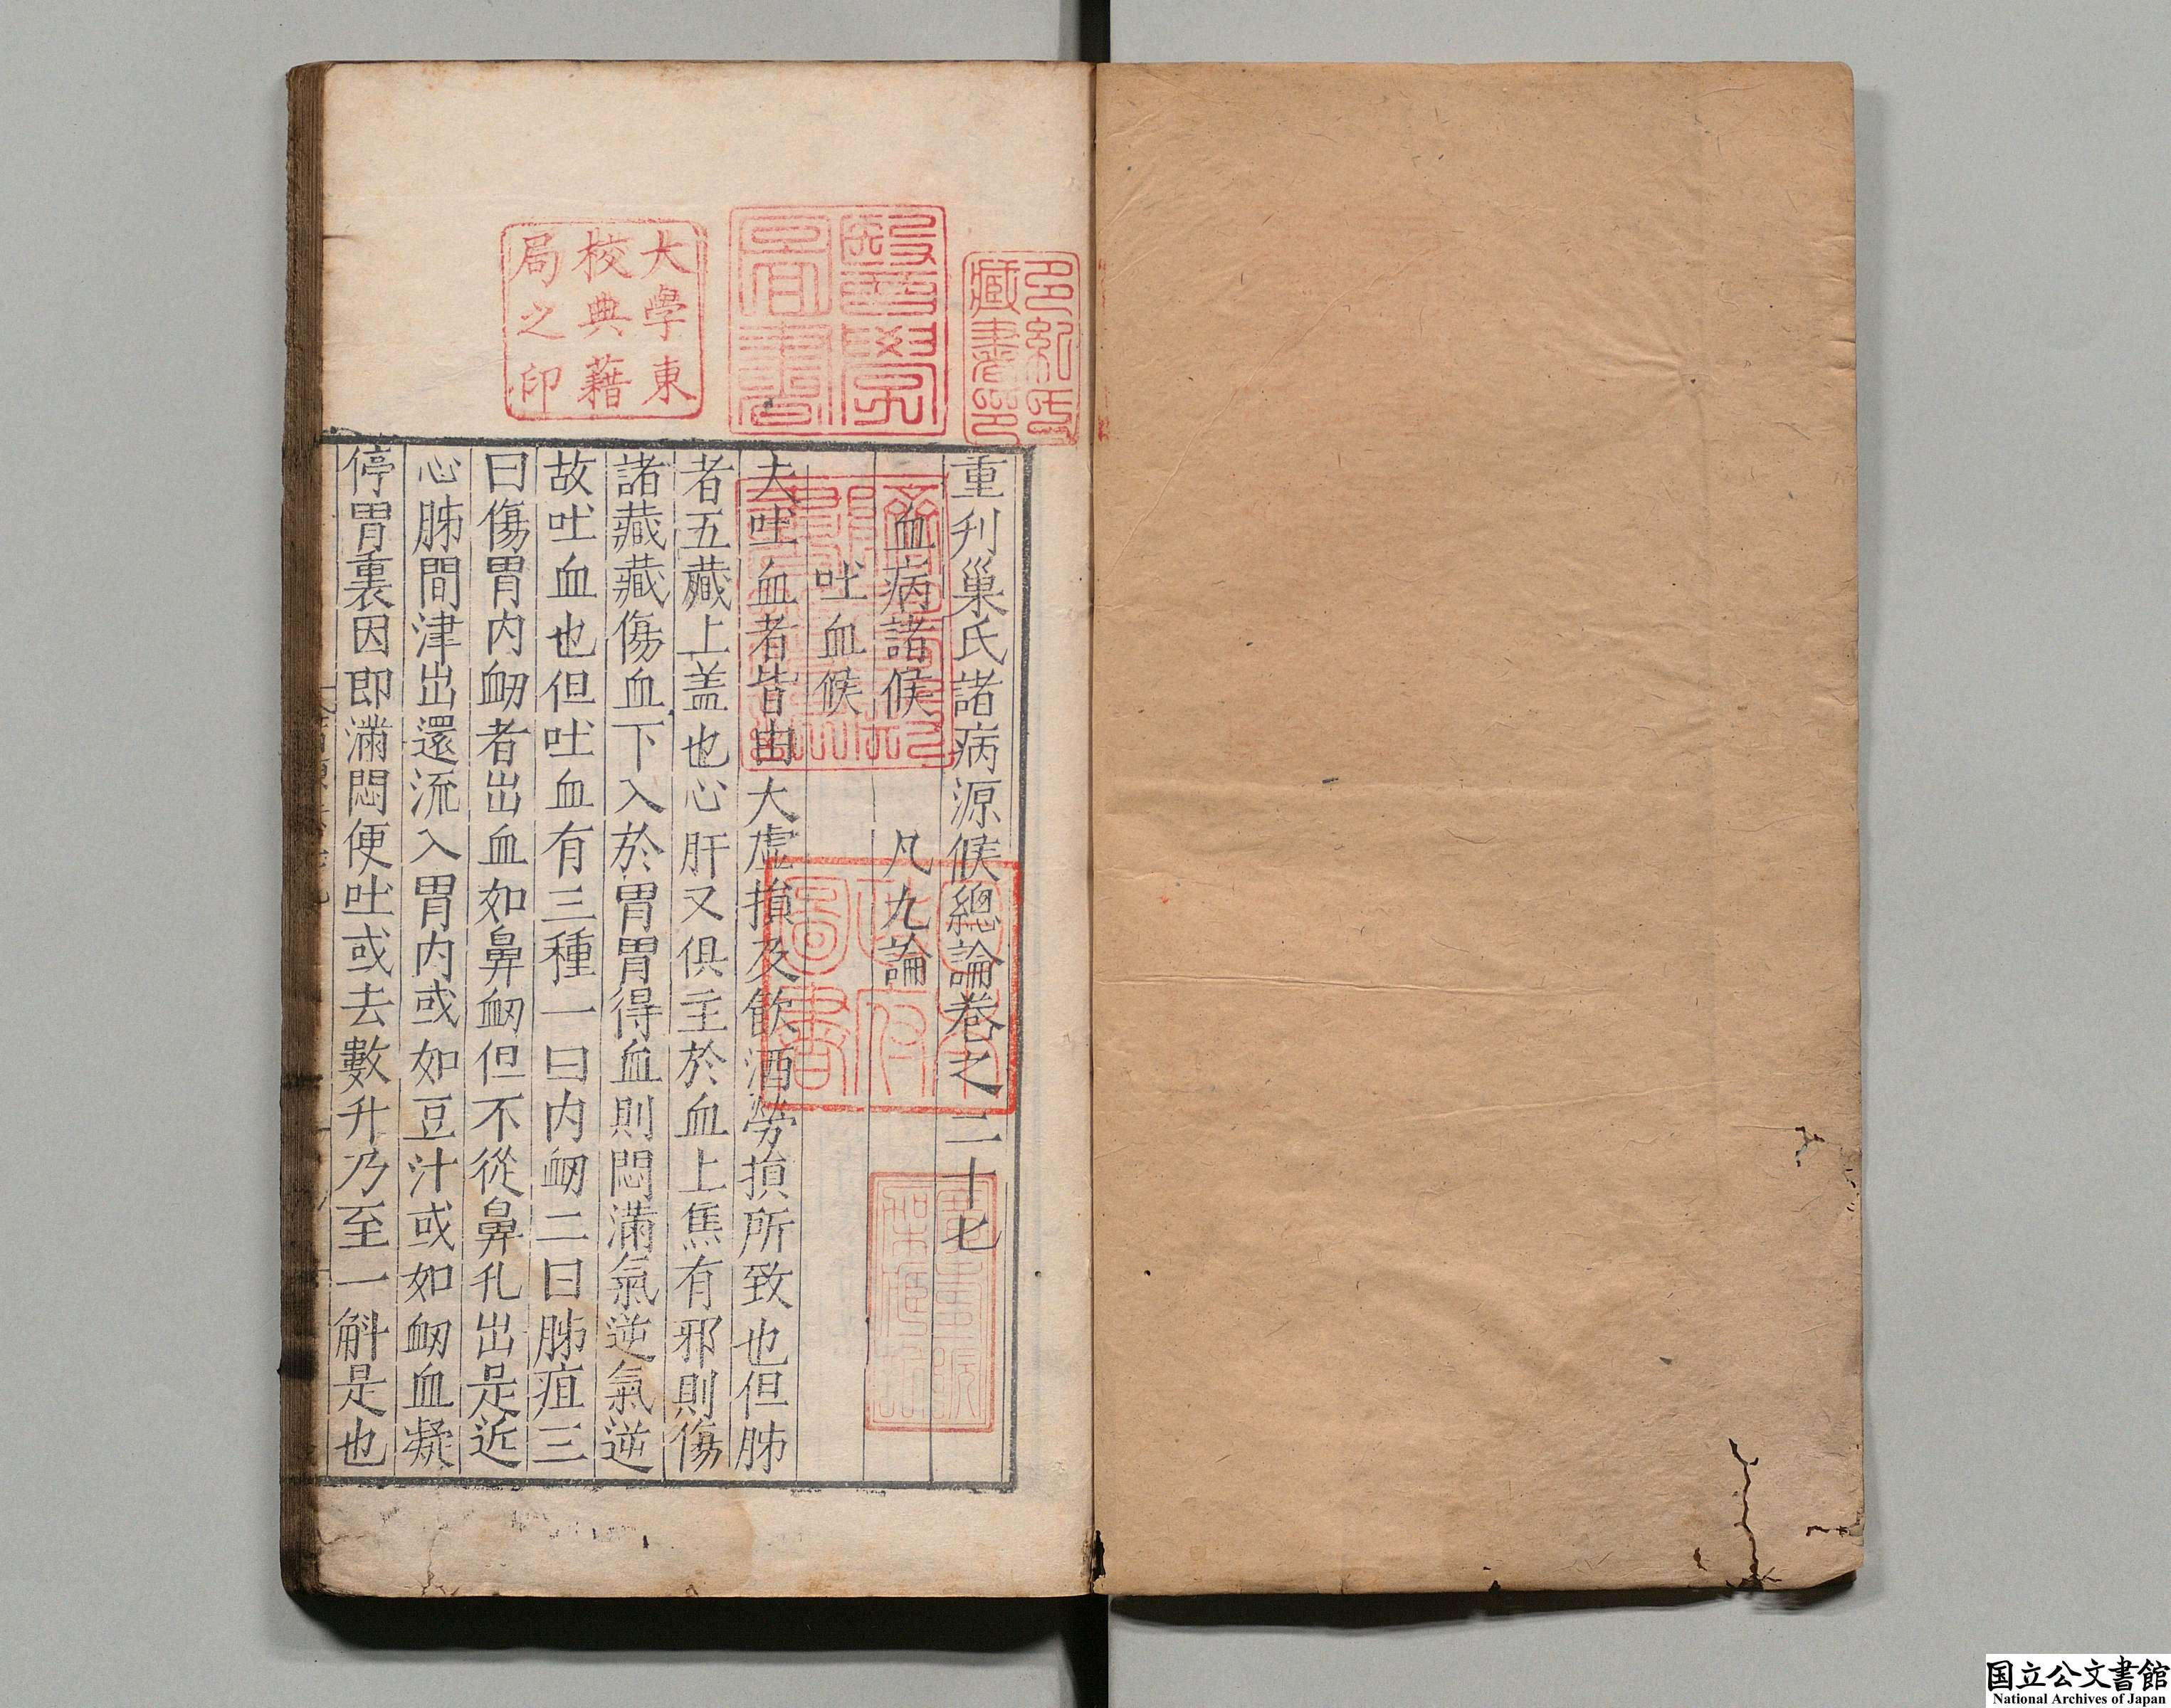 重刋巢氏諸病源候總論卷之二十七
血病諸候　凡九論
吐血候
夫吐血者皆由大虛損及飲酒勞損所致也但肺
者五藏上盖也心肝又俱主於血上焦有邪則傷
諸藏藏傷血下入於胃胃得血則悶滿氣逆氣逆
故吐血也但吐血有三種一曰内衂二曰肺疽三
曰傷胃内衂者出血如鼻衂但不從鼻孔出是近
心肺間津出還流入胃内或如豆汁或如衂血凝
停胃裏因即滿悶便吐或去數升乃至一斛是也
多紀氏
藏書印
醫學
圖書
大學東
校典藉
局之印
日本
政府
圖書
国立公文書館
National Archives of Japan